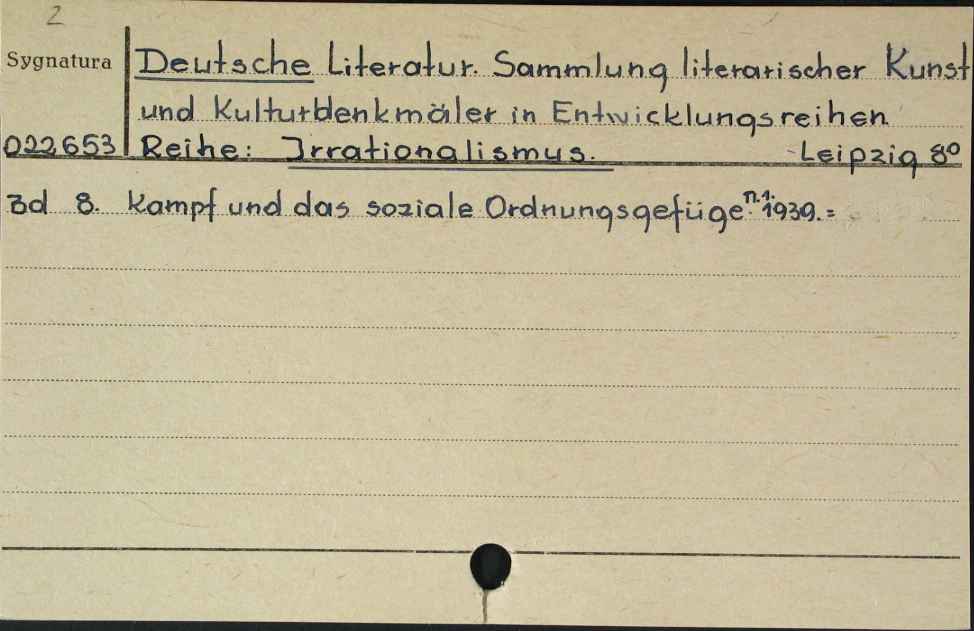 2
Sygnatura Deutsche Literatur. Sammlung literarischer Kunst
und Kulturdenkmäler in Entwicklungsreihen.
022653 Reihe: Irrationalismus. Leipzig 8º
Bd 8. Kampf und das soziale Ordnungsgefüge n.1. 1939.=